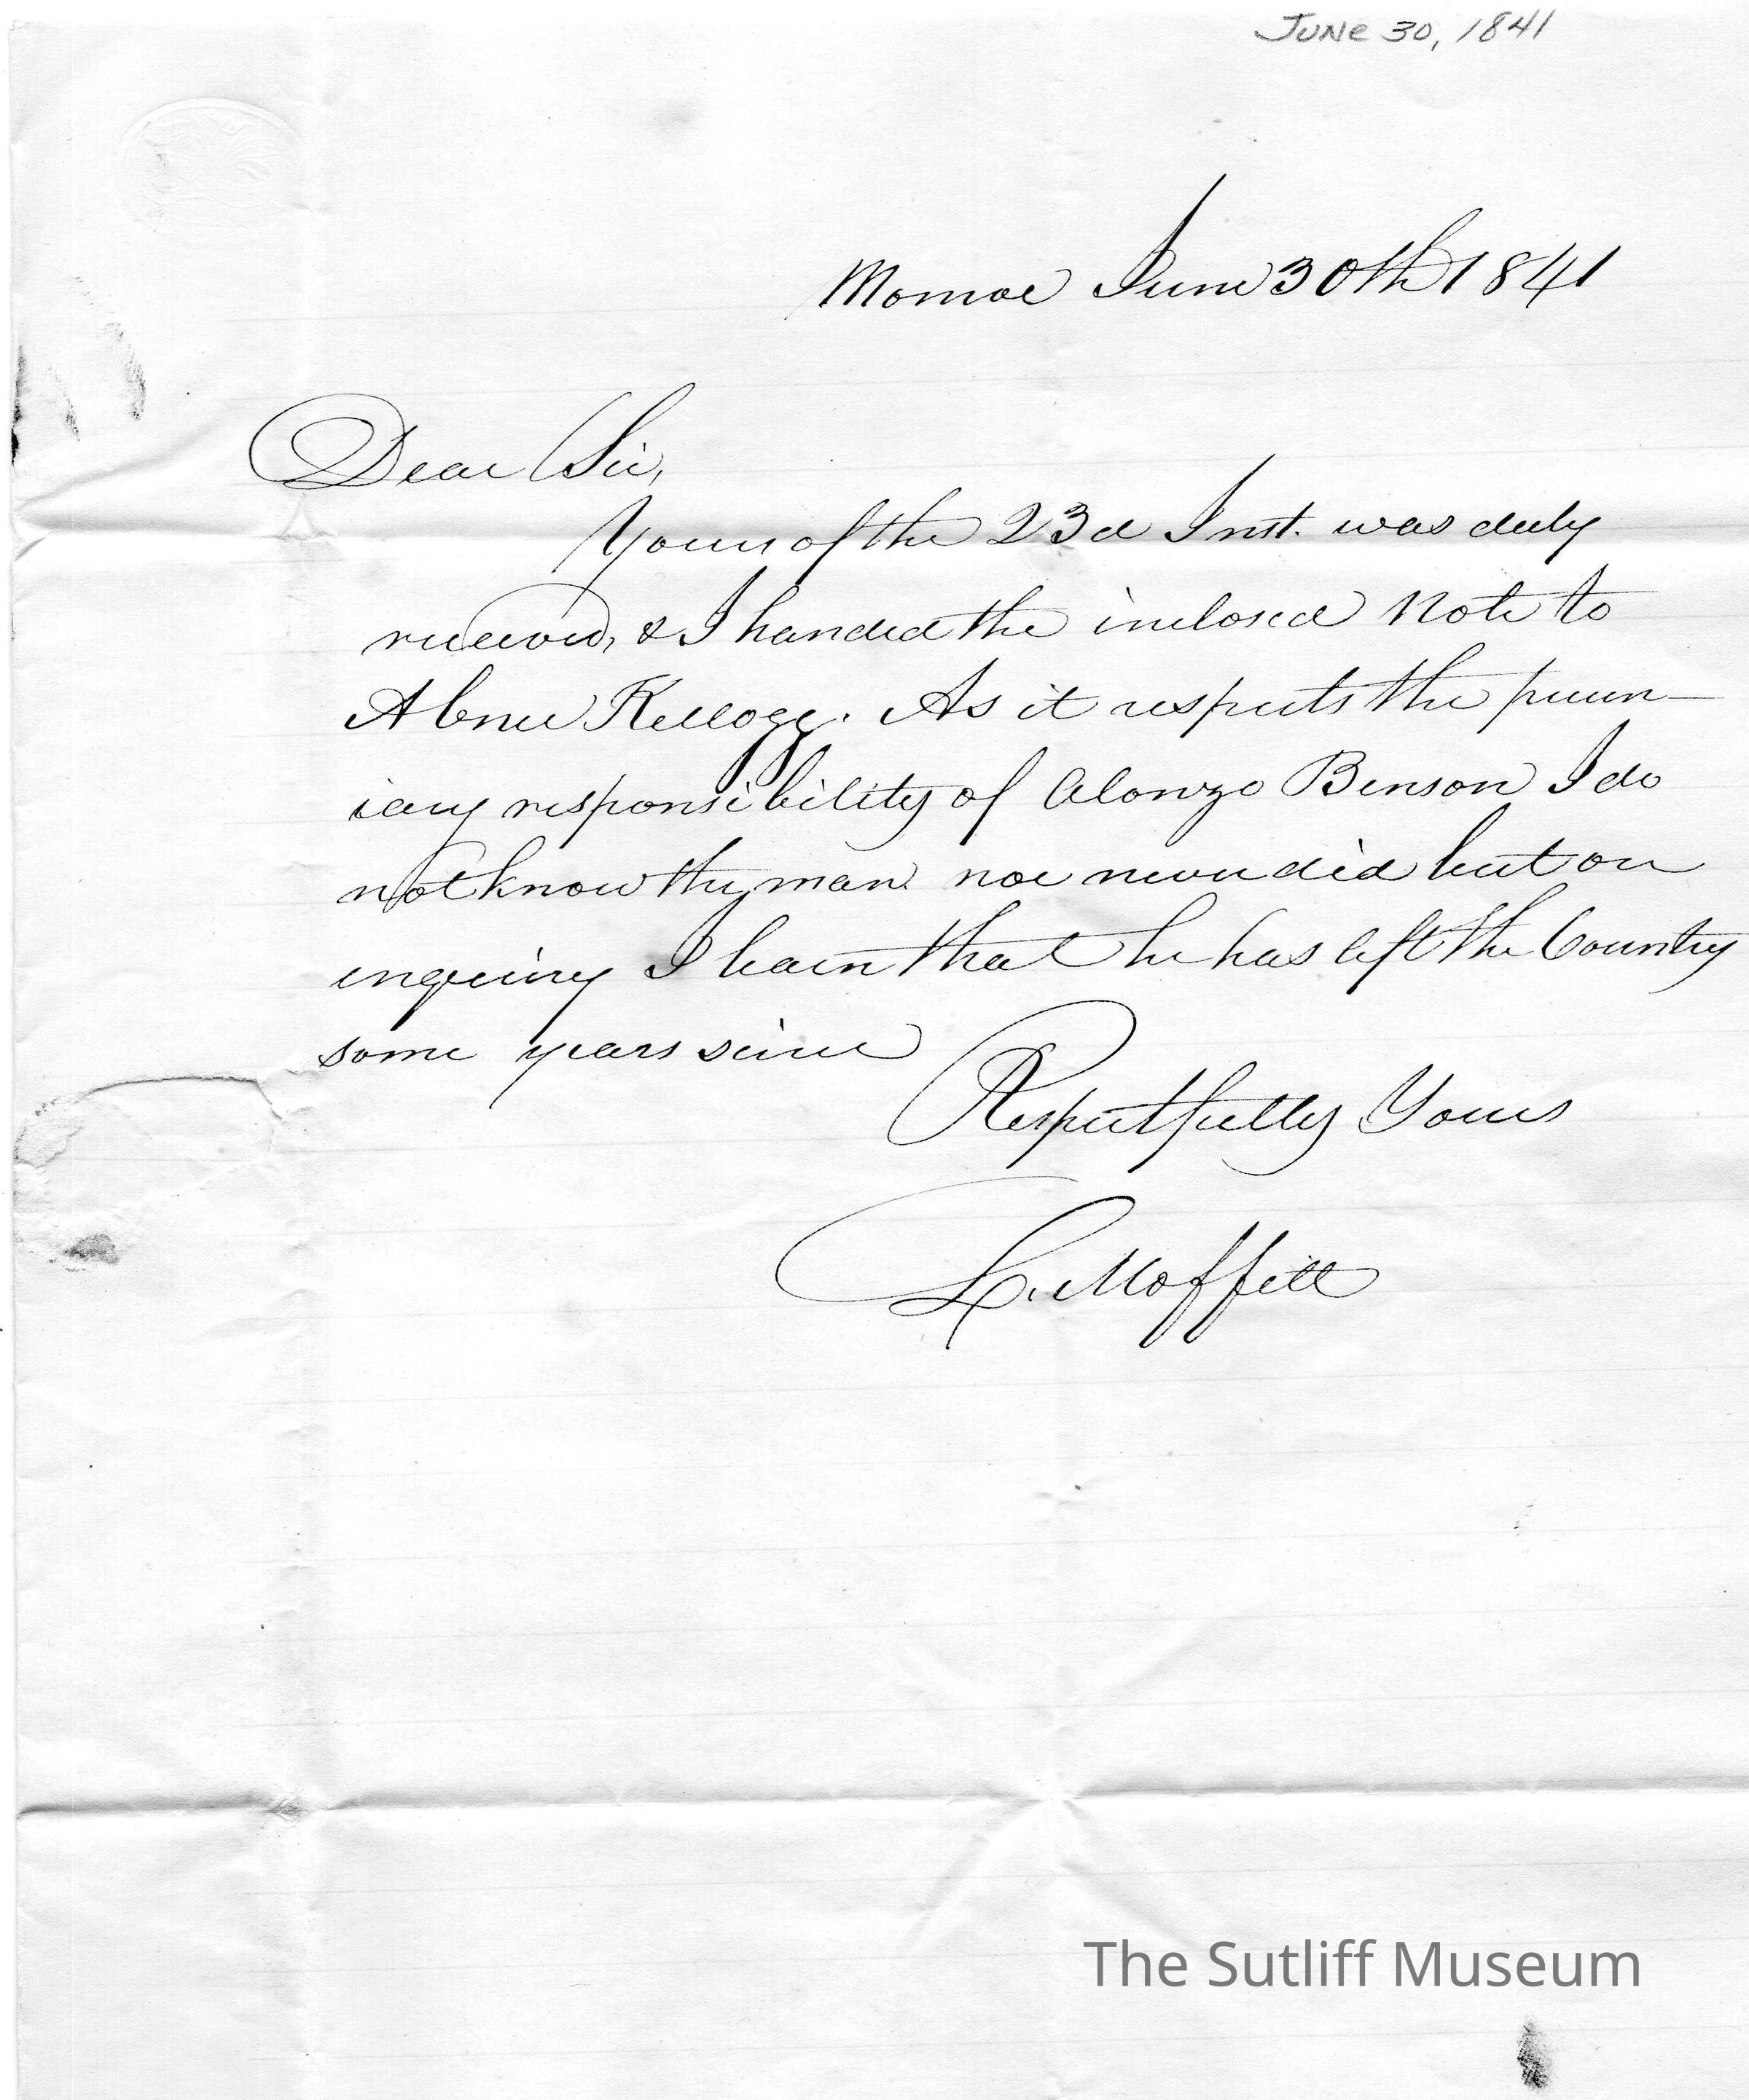 June 30, 1841
Monroe June 30th 1841
Dear Sir,
Yours of the 23d Inst. was duly
received, & I handed the inclosed Note to
Abner Kellogg. As it respects the pecun-
iary responsibility of Alonzo Benson I do
not know the man nor never did but on
enquiry I learn that he has left the Country
some years since
Respectfully Yours
L. Moffitt
The Sutliff Museum